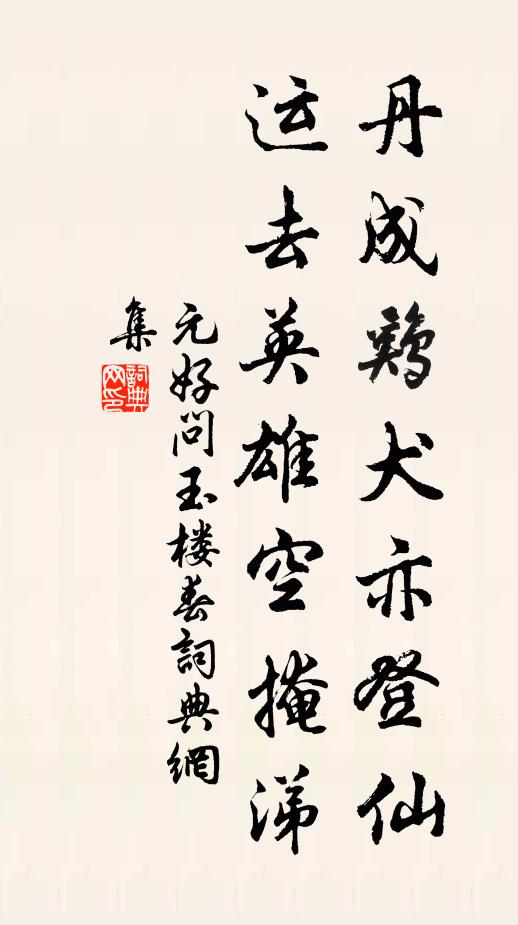 丹成鷄犬亦登仙
运去英雄空掩涕
元好问玉楼春詞典網
集
詞典
网印